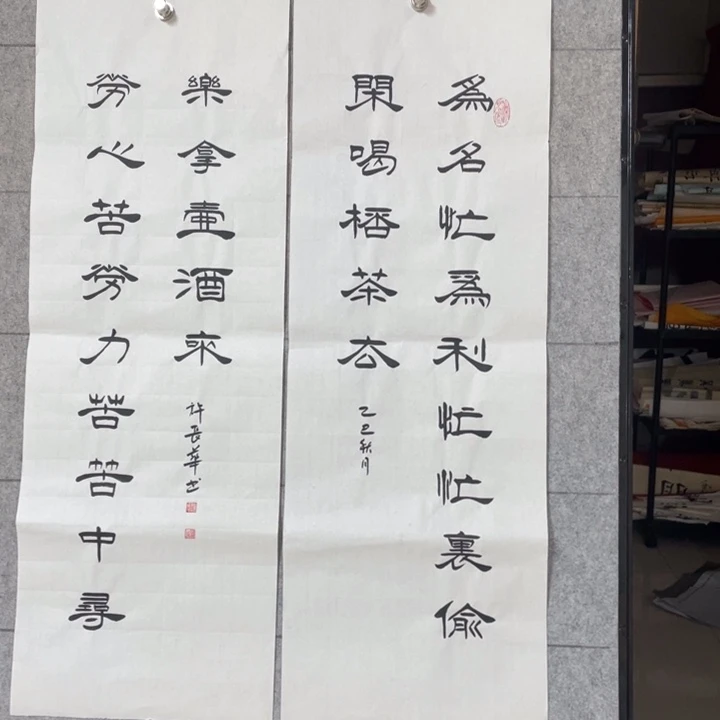 為名忙爲利忙忙裏偷
閑喝桮茶去
乙巳秋月
勞心苦勞力苦苦中尋
樂拿壺酒來
許長華书